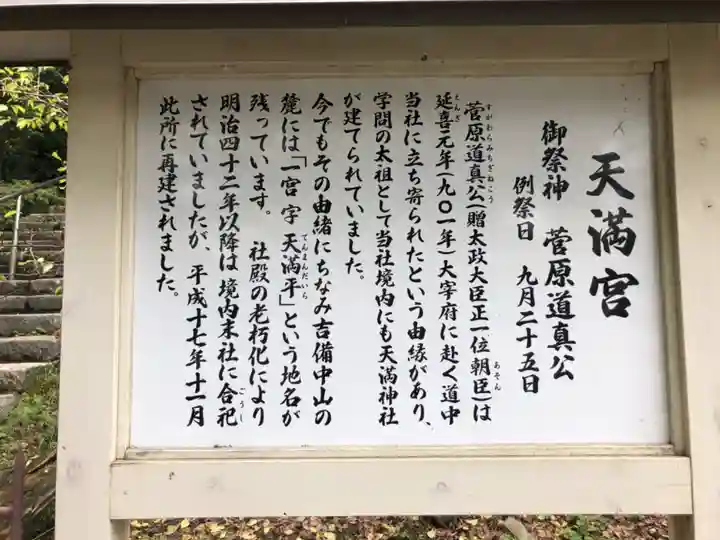 天満宮
御祭神 菅原道真公
例祭日 九月二十五日
菅原道真公(贈太政大臣正一位朝臣)は
すがわらみちざねこう
あそん
延喜元年(九〇一年)大宰府に赴く道中
えんぎ
当社に立ち寄られたという由縁があり、
学問の太祖として当社境内にも天満神社
が建てられていました。
今でもその由緒にちなみ吉備中山の
麓には「一宮字 天満平」という地名が
てんまんだいら
残っています。 社殿の老朽化により
明治四十二年以降は境内末社に合祀
ごうし
されていましたが、平成十七年十一月
此所に再建されました。